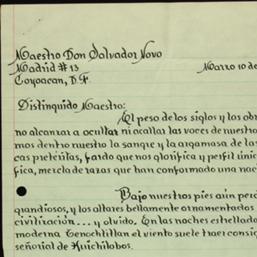 Maestro Don Salvador Novo
Madrid # 13
Marzo 10 de
Coyoacan, D.F.
Distinguido Maestro:
El peso de los siglos y los obr
no alcanzar a ocultar ni acallar las voces de nuestro
mos dentro nuestro la sangre y la argamasa de las
cas pretéritas, fardo que nos glorifica y perfil únic
fica, mezcla de razas que han conformado una nac
Bajo nuestros pies aún perd
grandiosos, y los altares bellamente ornamentados
civilización... y olvido. En las noches estrellada
moderna Tenochtitlan el viento suele traer consig
señorial de Huichilobos.